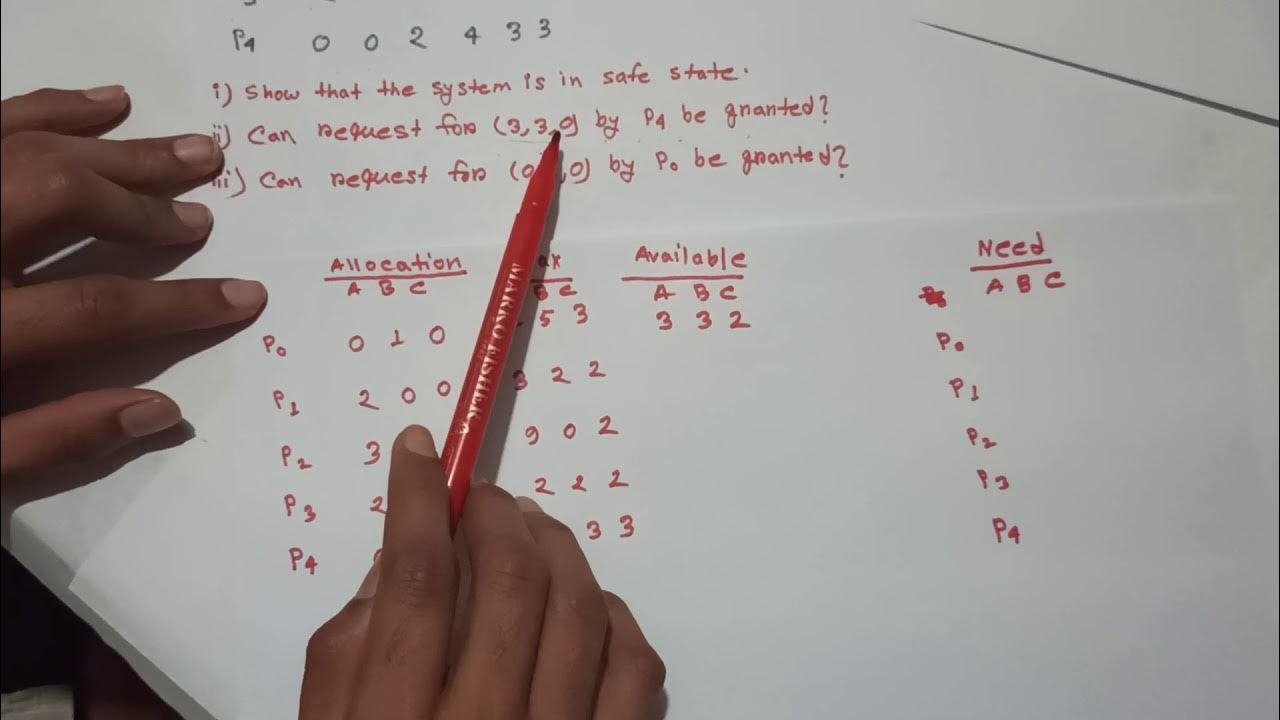 P4 0 0 2 4 3 3
i) Show that the system is in safe state.
ii) Can request for (3,3,0) by P4 be granted?
iii) Can request for (0, ,0) by P0 be granted?
Allocation Available Need
A B C B C A B C A B C
P0 0 1 0 5 3 3 3 2 P0
P1 2 0 0 3 2 2 P1
P2 3 9 0 2 P2
P3 2 2 2 2 P3
P4 3 3 P4
MARKO FISHER